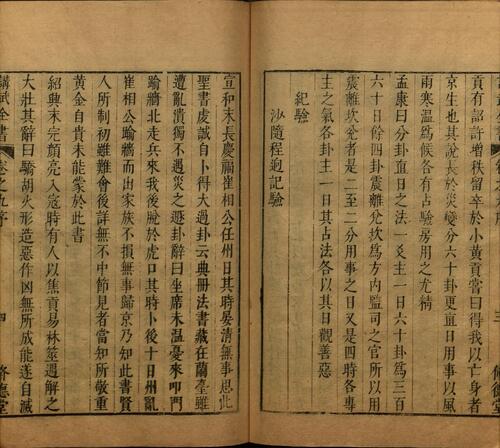 貢有認許增秩留卒於小黃貢嘗曰得我以亡身者
京生也其說長於災變分六十卦更直日用事以風
雨寒溫爲候各有占驗房用之尤精
孟康曰分卦直日之法一爻主一日六十卦爲三百
六十日餘四卦震離兌坎爲方內監司之官所以用
震離兌坎者是二至二分用事之日又是四時各專
主之氣各卦主一日其占法各以其日觀善惡
紀驗
沙隨程迥記驗
宣和末長慶福崔相公任州日其時晏清無事思此
聖書虔誠自卜得大過卦云典冊法書藏在蘭臺雖
遭亂潰獨不遇災之遯卦辭曰坐席未溫憂來叩門
踰牆北走兵來我後脫於虎口其時卜後十日州亂
崔相公踰牆而出家族不損無事歸京乃知此書賢
人所制初雖難會後詳無不中節見者當知所敬重
黃金自貴未能蒙於此書
紹興末完顏亮入寇時有人以焦貢易林筮遇解之
大壯其辭曰驕胡火形造惡作凶無所威能遂自滅
卷之九序
四
脩德堂